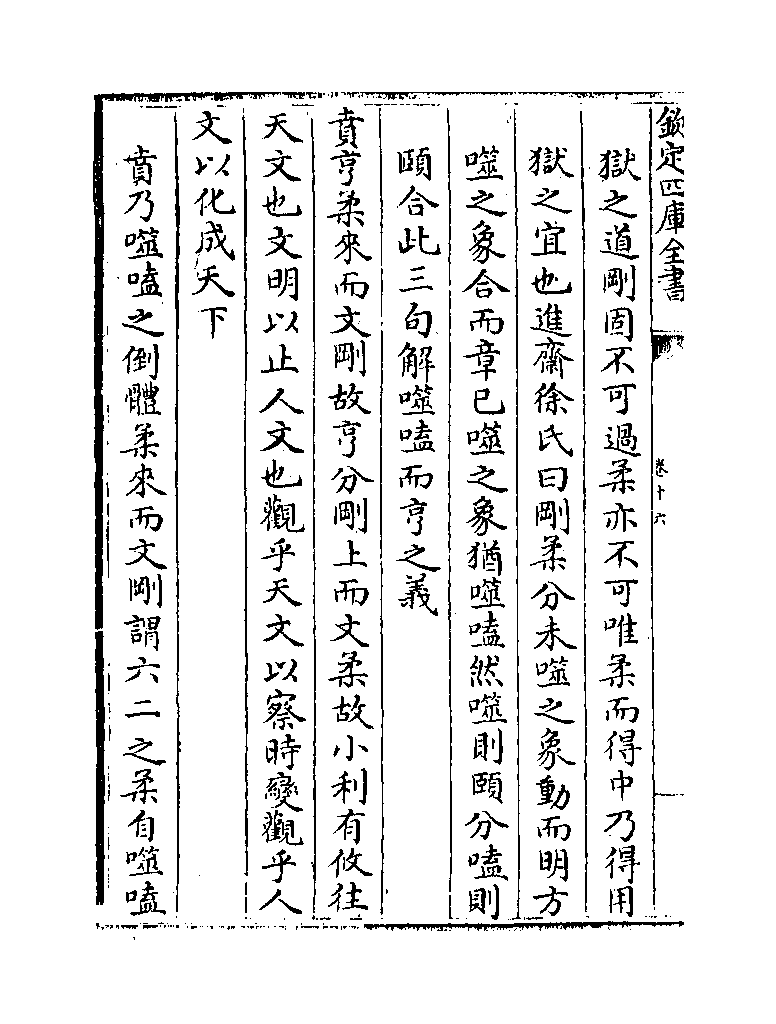 欽定四庫全書
卷十六
獄之道剛固不可過柔亦不可唯柔而得中乃得用
獄之宜也進齋徐氏曰剛柔分未噬之象動而明方
噬之象合而章已噬之象猶噬嗑然噬則頤分嗑則
頤合此三句解噬嗑而亨之義
賁亨柔來而文剛故亨分剛上而文柔故小利有攸往
天文也文明以止人文也觀乎天文以察時變觀乎人
文以化成天下
賁乃噬嗑之倒體柔來而文剛謂六二之柔自噬嗑